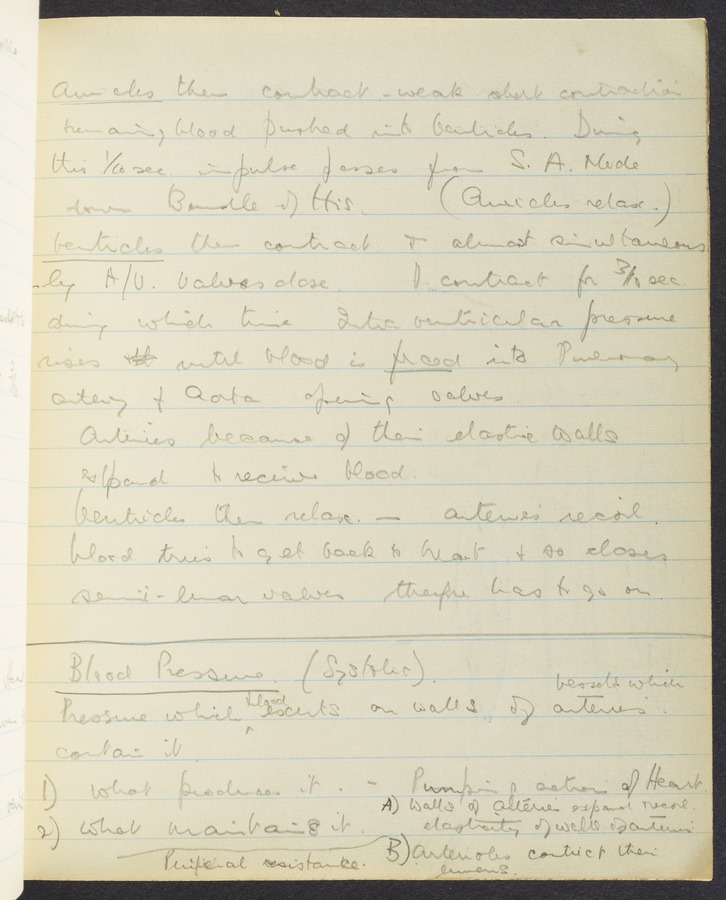 Auricles then contract - weak short contraction
remaining blood pushed into Ventricles. During
this 1/10 sec impulse passes from S. A. Node
down Bundle of His. (Auricles relax.)
Ventricles then contract & almost simultaneous
-ly A/V. Valves close. contract for 3/10 sec
during which time Intra ventricular pressure
rises until blood is forced into Pulmonary
artery & Aorta opening valves
Arteries because of their elastic walls
expand to receive blood.
Ventricles then relax. — arteries recoil.
blood tries to get back to heart & so closes
semi-lunar valves therefore has to go on.
Blood Pressure. (Systolic).
vessels which
Pressure which blood exerts on walls of arteries.
contain it
1) What produces it. - Pumping action of Heart.
A) Walls of arteries expand recoil.
2) What maintains it. elasticity of walls of arteries
Peripheral resistance. B) Arterioles contrict their
lumens.